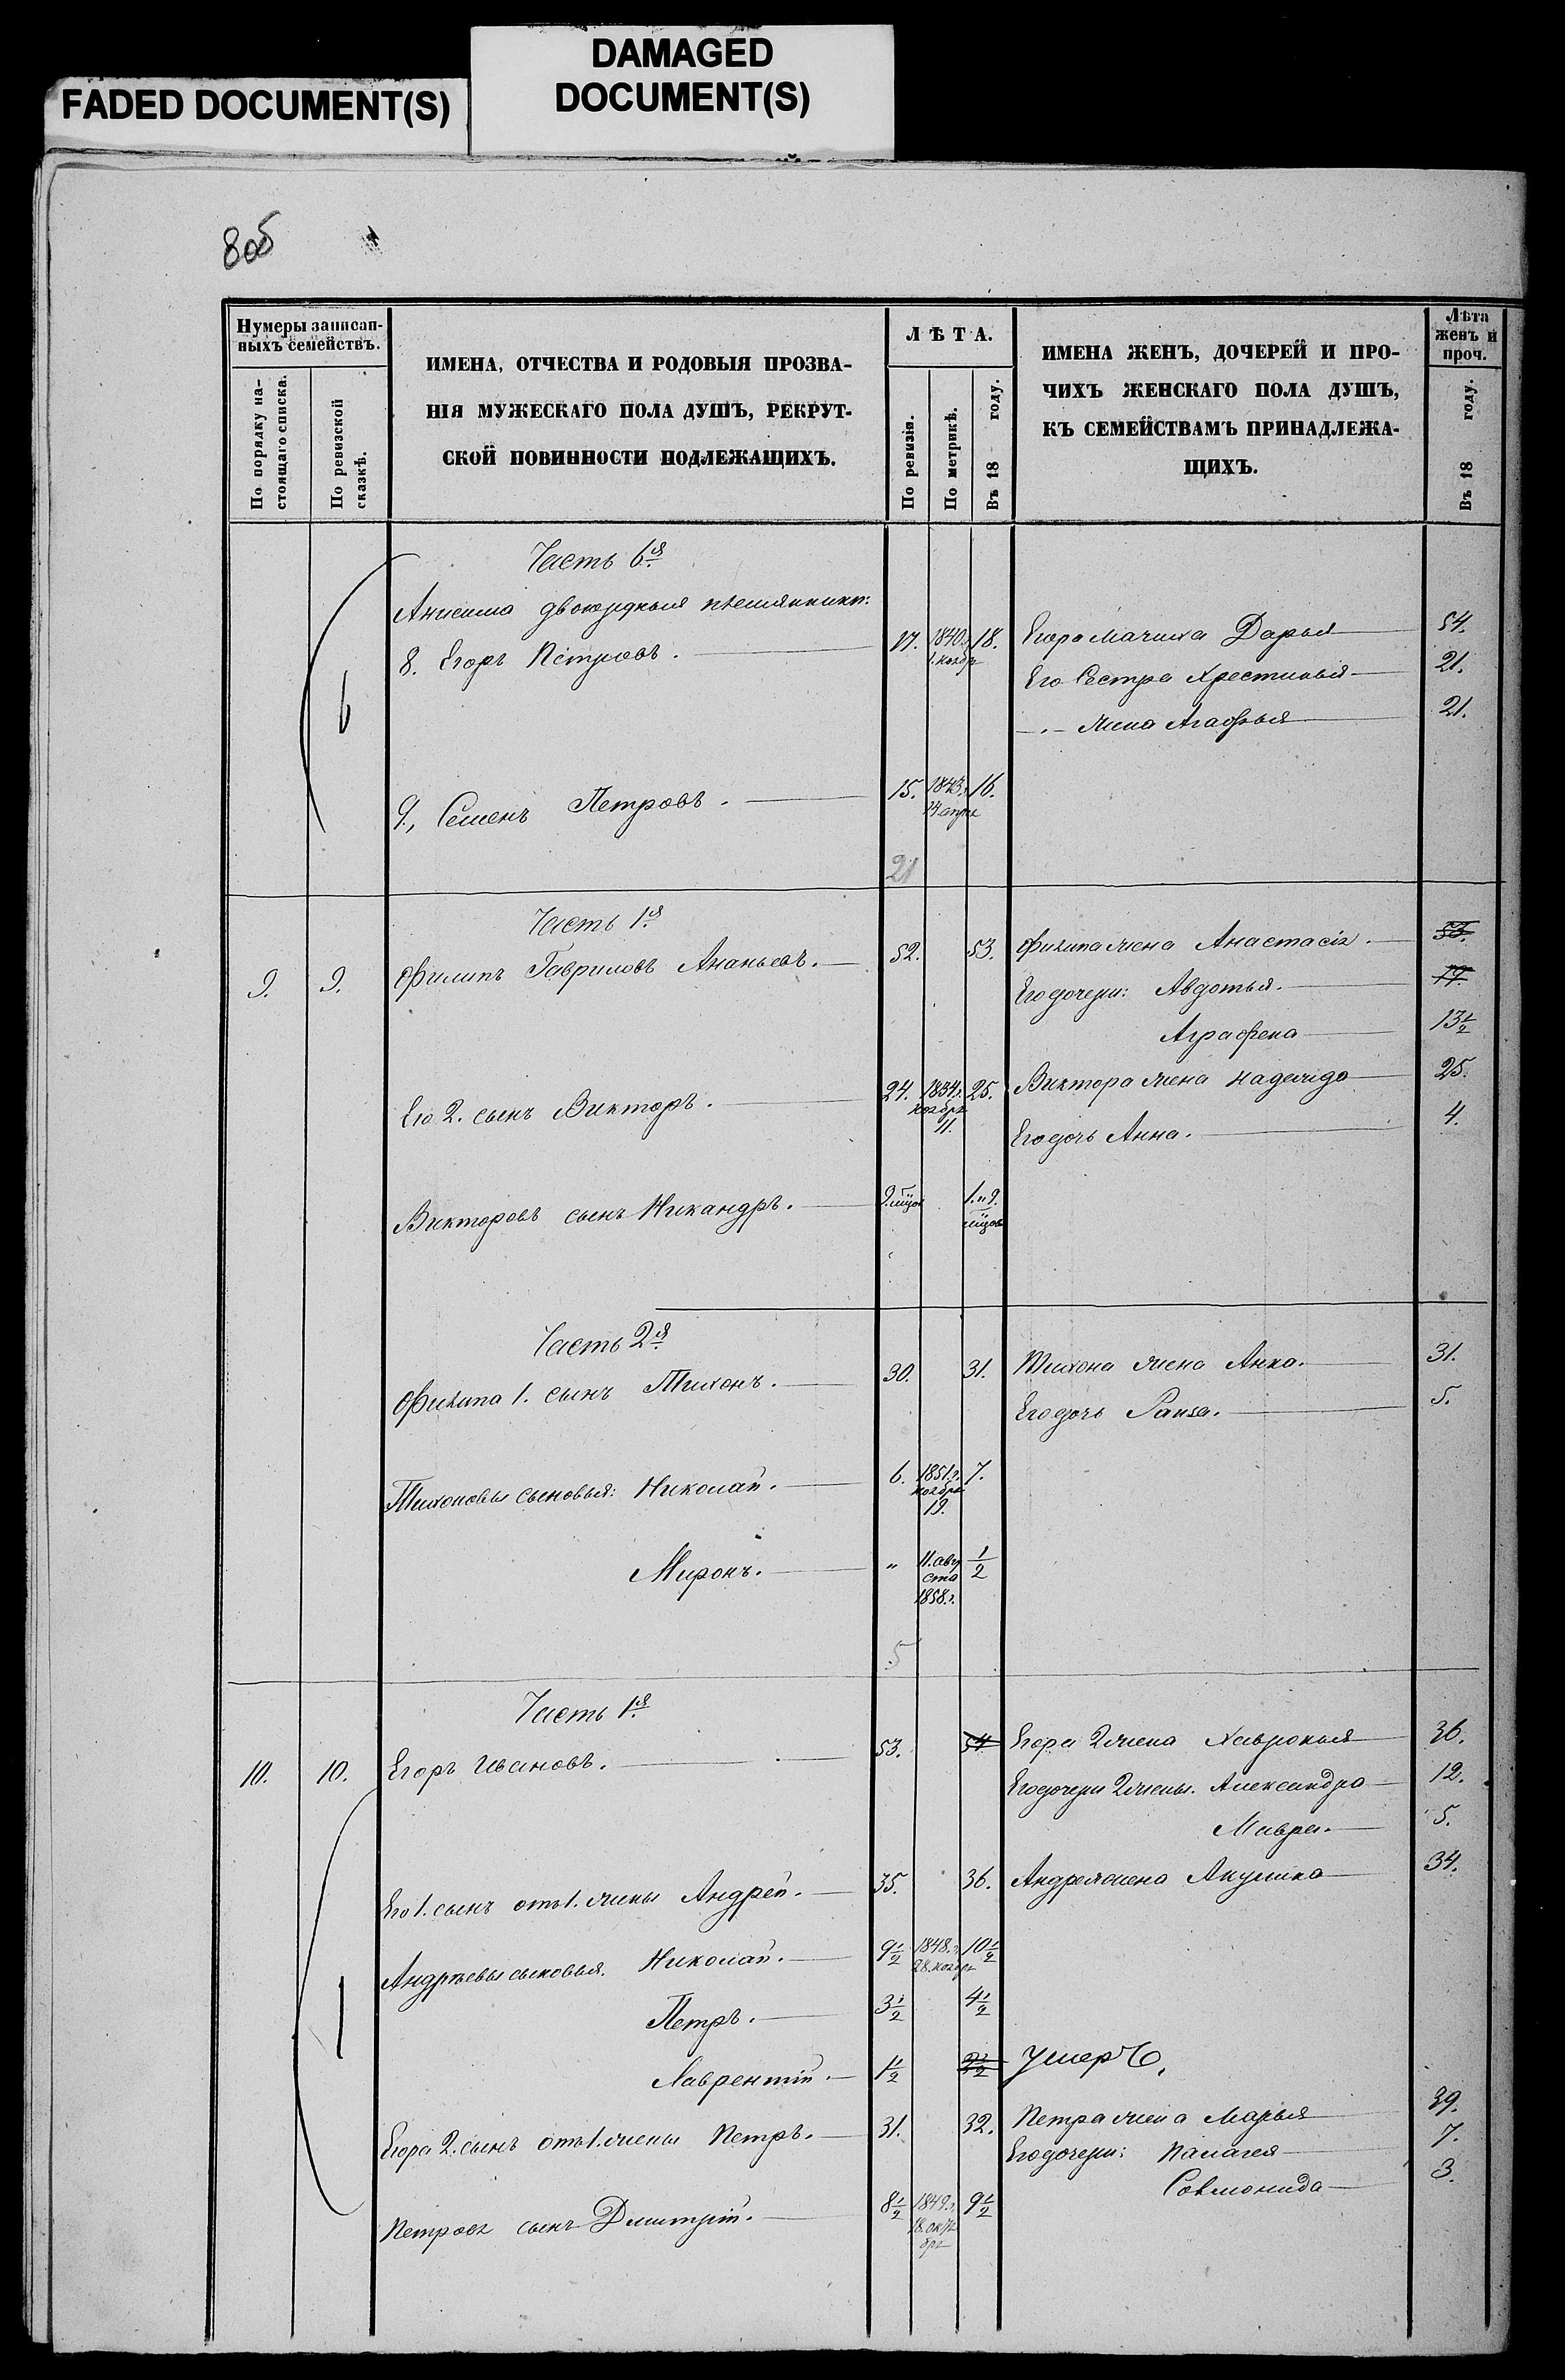 FADED DOCUMENT(S)
DAMAGED
DOCUMENT(S)
80об
Нумеры записан-
ныхъ семействъ.
По порядку на-
стоящаго списка.
По ревизской
сказкѣ.
ИМЕНА, ОТЧЕСТВА И РОДОВЫЯ ПРОЗВА-
НІЯ МУЖЕСКАГО ПОЛА ДУШЪ, РЕКРУТ-
СКОЙ ПОВИННОСТИ ПОДЛЕЖАЩИХЪ.
ЛѢТА.
По ревизіи.
По метрикѣ.
Въ 18 году.
ИМЕНА ЖЕНЪ, ДОЧЕРЕЙ И ПРО-
ЧИХЪ ЖЕНСКАГО ПОЛА ДУШЪ,
КЪ СЕМЕЙСТВАМЪ ПРИНАДЛЕЖА-
ЩИХЪ.
Лѣта
женъ и
проч.
Въ 18 году.
Часть 6я
Анисима двоюрдныя племянники:
8. Егоръ Петровъ. 17. 1840.г. 18. Егора мачиха Дарья 54.
1. ноябр
6
Его Сестра Хрестинья 21.
—„— жена Агафья 21.
9., Семенъ Петровъ. 15. 1843.г. 16.
14 апре
21
Часть 1я
9. 9. Филипъ Гавриловъ Ананьевъ. 52. 53. Филипа жена Анастасія. 53.
Его дочери: Авдотья. 17.
Аграфена 13½
Его 2. сынъ Викторъ. 24. 1834.г. 25. Виктора жена Надежда 25.
ноября
11.
Его дочь Анна. 4.
Викторовъ сынъ Никандръ. 9. мцов 1. и 9.
мцовъ
Часть 2я
Филипа 1. сынъ Тихонъ. 30. 31. Тихона жена Анна. 31.
Его дочь Раиса. 5.
Тихоновы сыновья: Николай. 6. 1851.г. 7.
ноября
19.
Миронъ. „ 11. авгу ½
ста
1858.г.
5
Часть 1я
10. 10. Егоръ Ивановъ. 53. 54. Егора 2 жена Хавронья 36.
Его дочери 2 жены. Александра 12.
Мавра. 5.
Его 1. сынъ отъ 1. жены Андрей. 35. 36. Андрея жена Акулина 34.
Андреевы сыновья. Николай. 9½ 1848.г. 10½
28. ноября
Петръ. 3½ 4½
1
Лаврентій. 1½ 2½ умеръ.
Егора 2. сынъ отъ 1. жены Петръ. 31. 32. Петра жена Марья 39.
Его дочери: Палагея 7.
Соломонида 3.
Петровъ сынъ Дмитрій. 8½ 1849.г. 9½
18. октя
бря